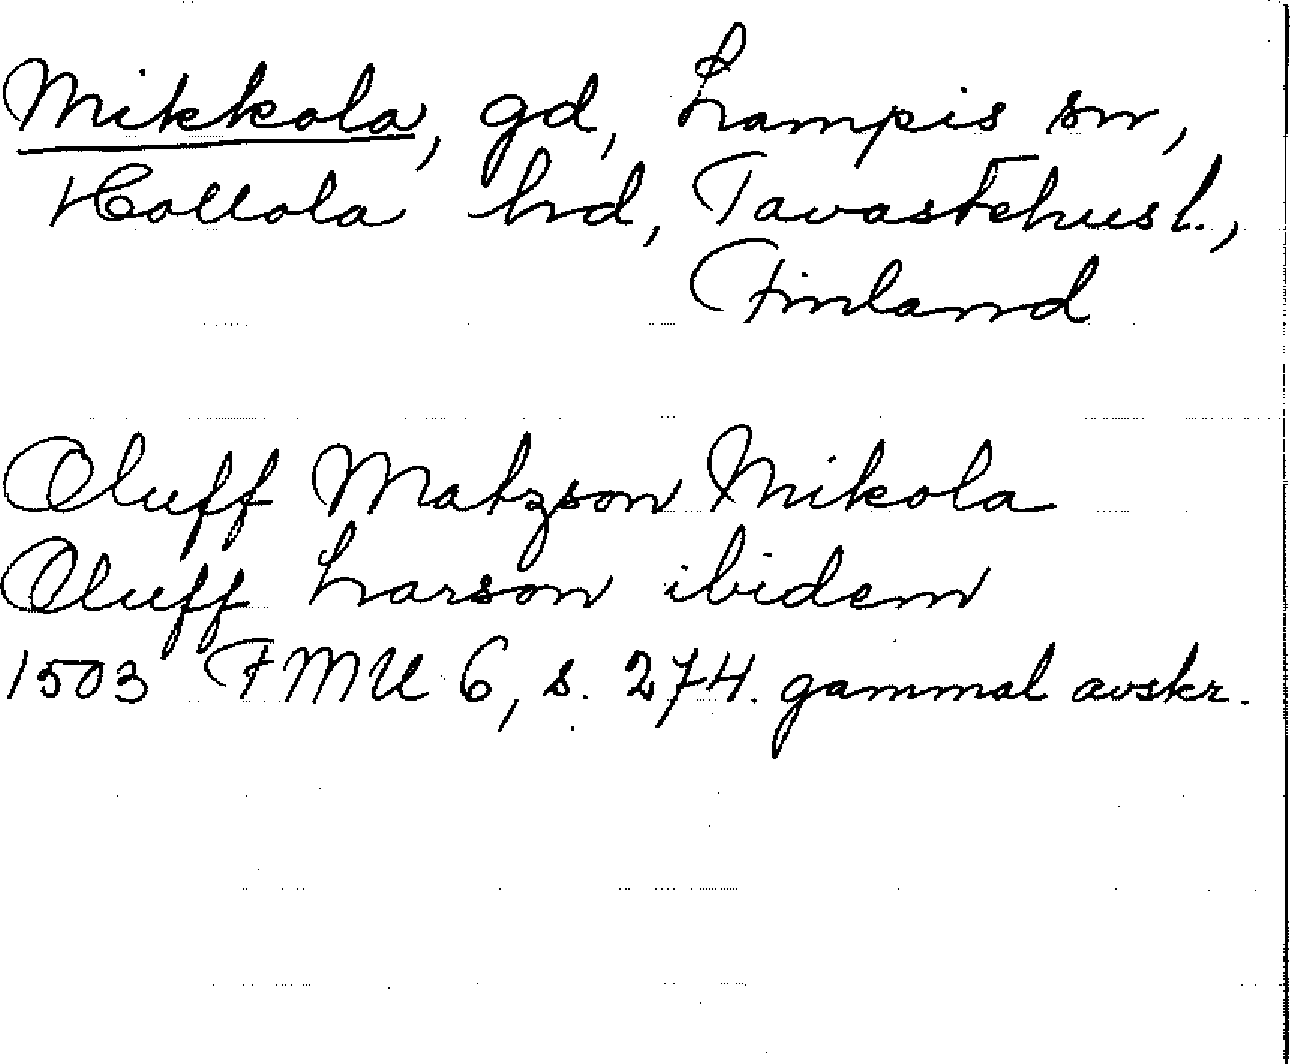 Mikkola, gd, Lampis sn,
Hollola hd, Tavastehus l.,
Finland
Oluff Matzson Mikola
Oluff Larson ibidem
1503 FMU 6, s. 274. gammal avskr.